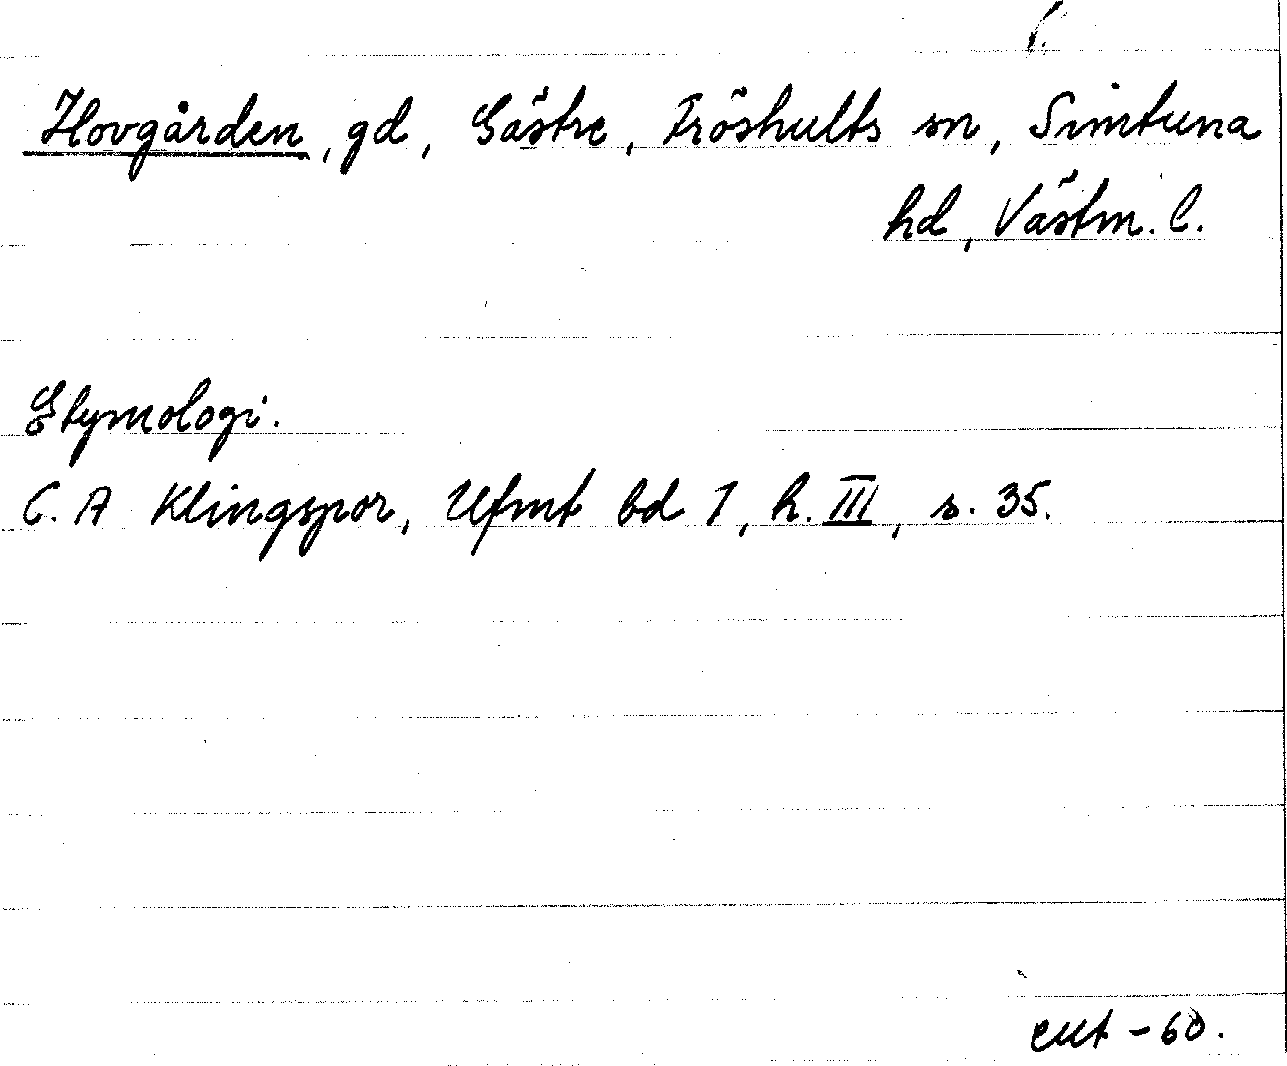 Hovgården, gd, Gästre, Fröshults sn, Simtuna
hd, Västm. l.
Etymologi.
C. A Klingspor, Ufmt bd 1, h. III, s. 35.
- 60.